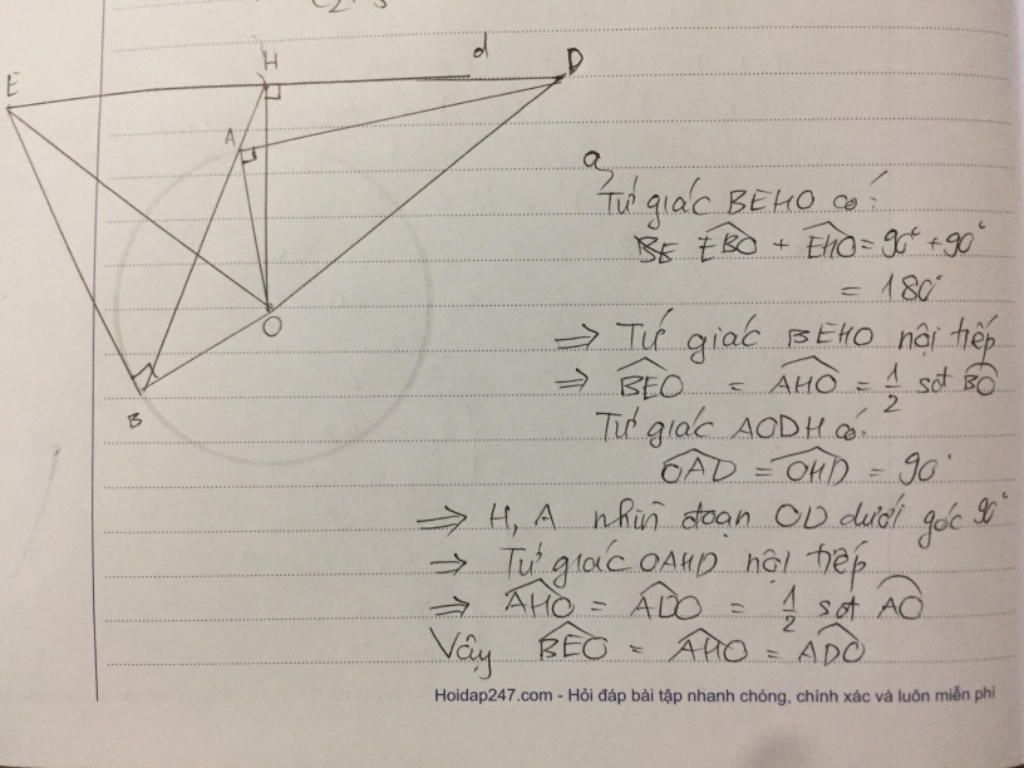 E
H
d
D
A
O
B
a,
Tứ giác BEHO có:
EBO + EHO = 90° + 90°
= 180°
⇒ Tứ giác BEHO nội tiếp
⇒ BEO = AHO = 1/2 sđ BO
Tứ giác AODH có:
OAD = OHD = 90°
⇒ H, A nhìn đoạn OD dưới góc 90°
⇒ Tứ giác OAHD nội tiếp
⇒ AHO = ADO = 1/2 sđ AO
Vậy BEO = AHO = ADO
Hoidap247.com - Hỏi đáp bài tập nhanh chóng, chính xác và luôn miễn phí